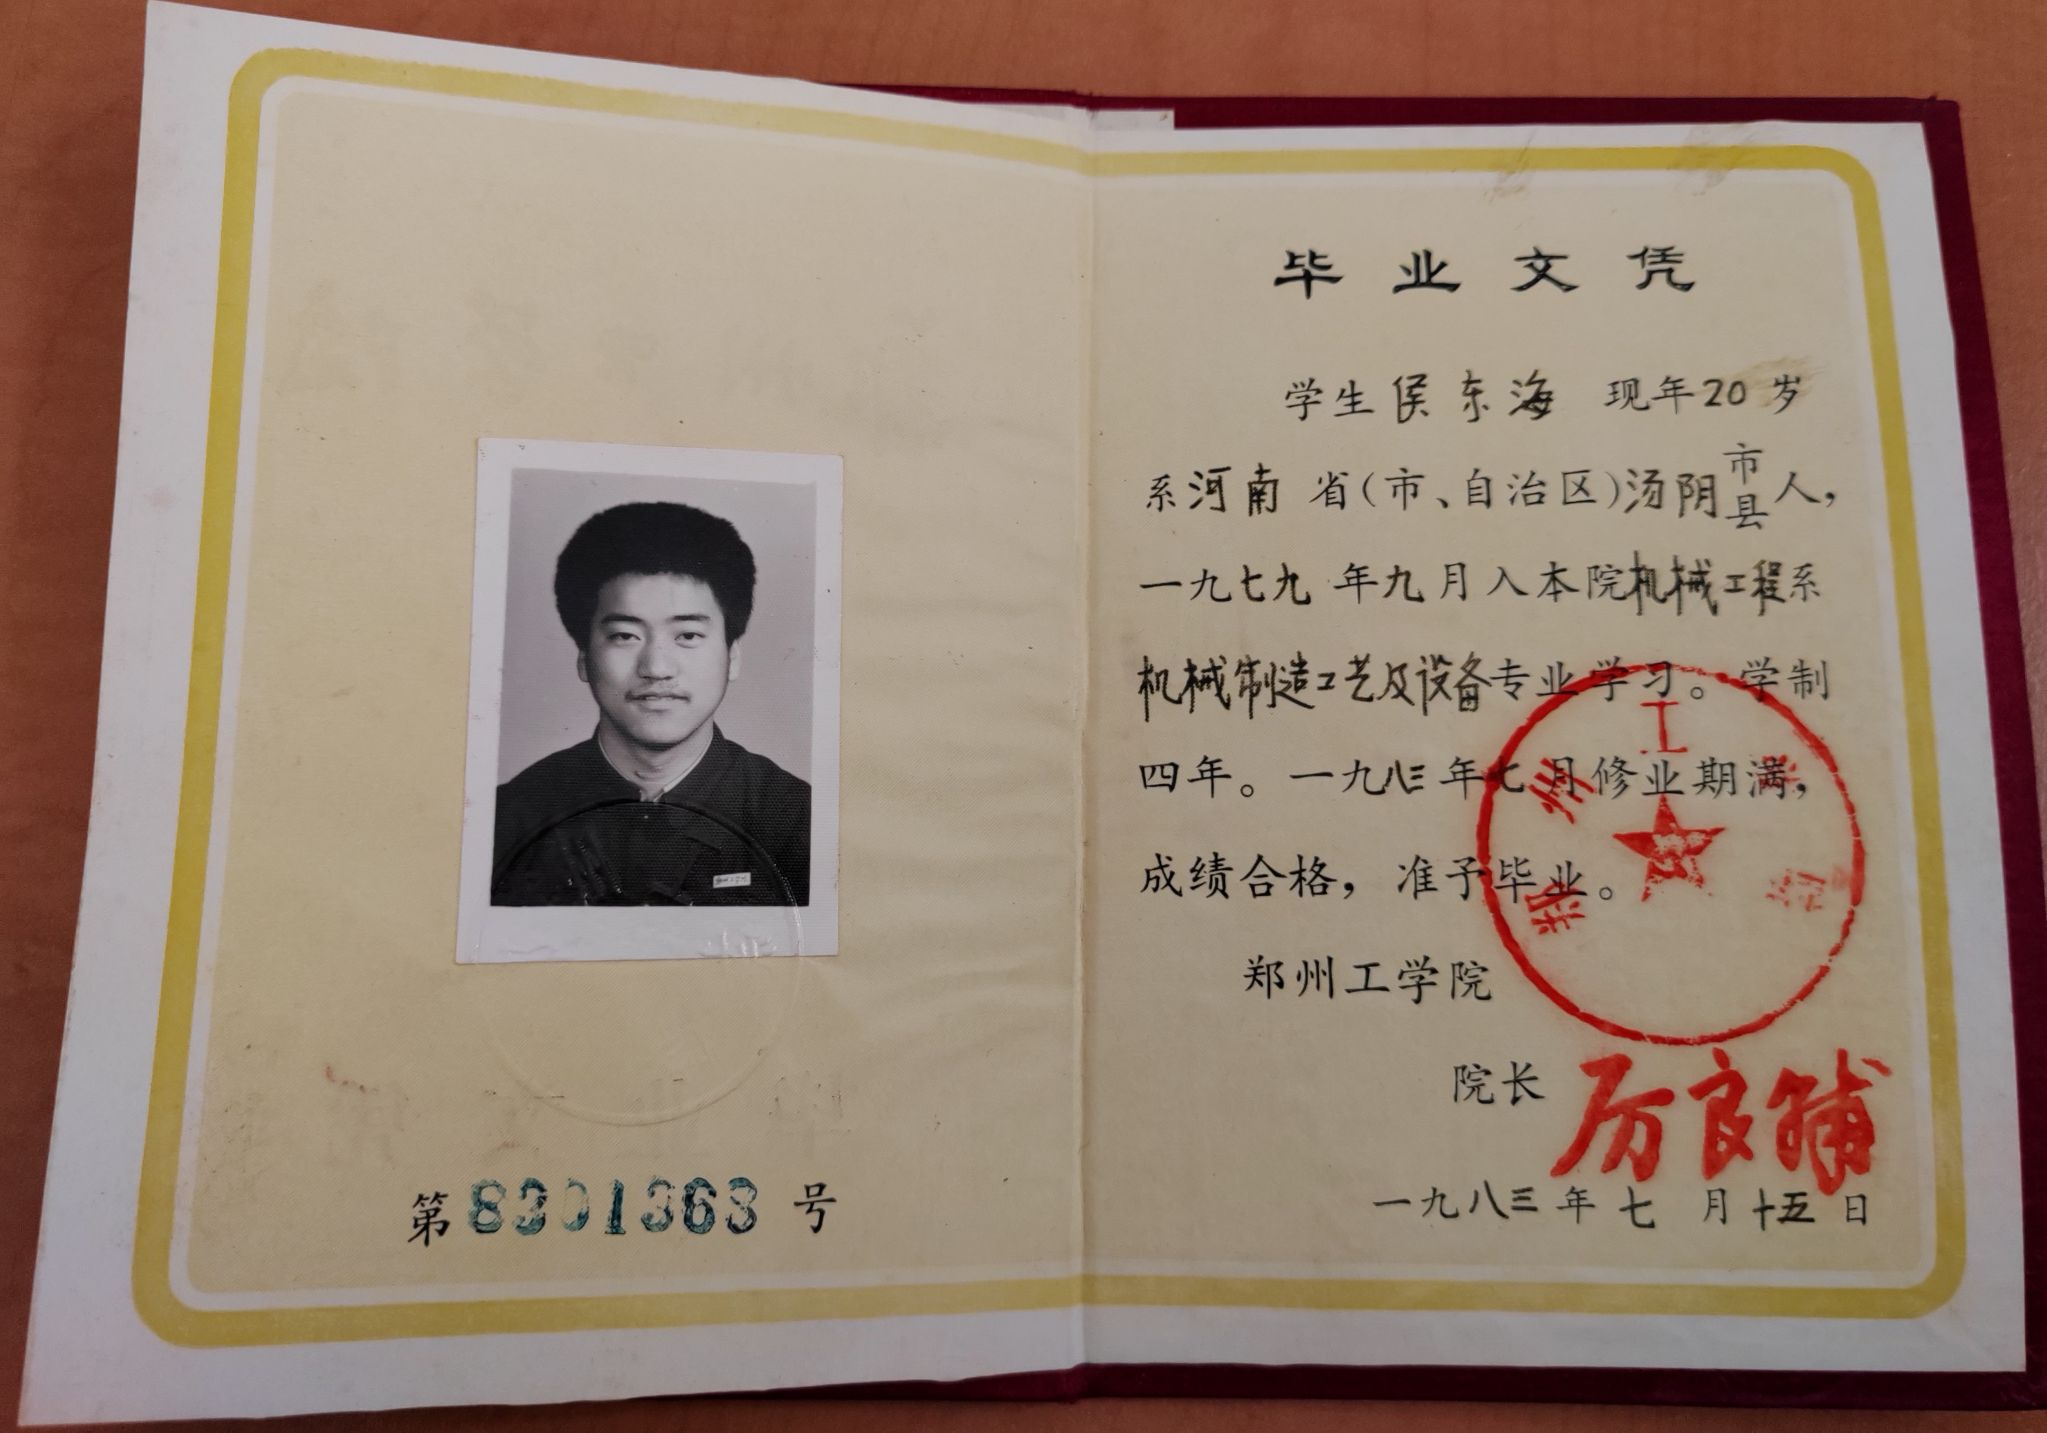 第8301363号
毕业文凭
学生侯东海 现年20岁
系河南 省(市、自治区)汤阴市县人,
一九七九 年九月入本院机械工程系
机械制造工艺及设备专业学习。学制
四年。一九八三年七月修业期满,
成绩合格,准予毕业。
郑州工学院
院长 厉良辅
一九八三年七月十五日